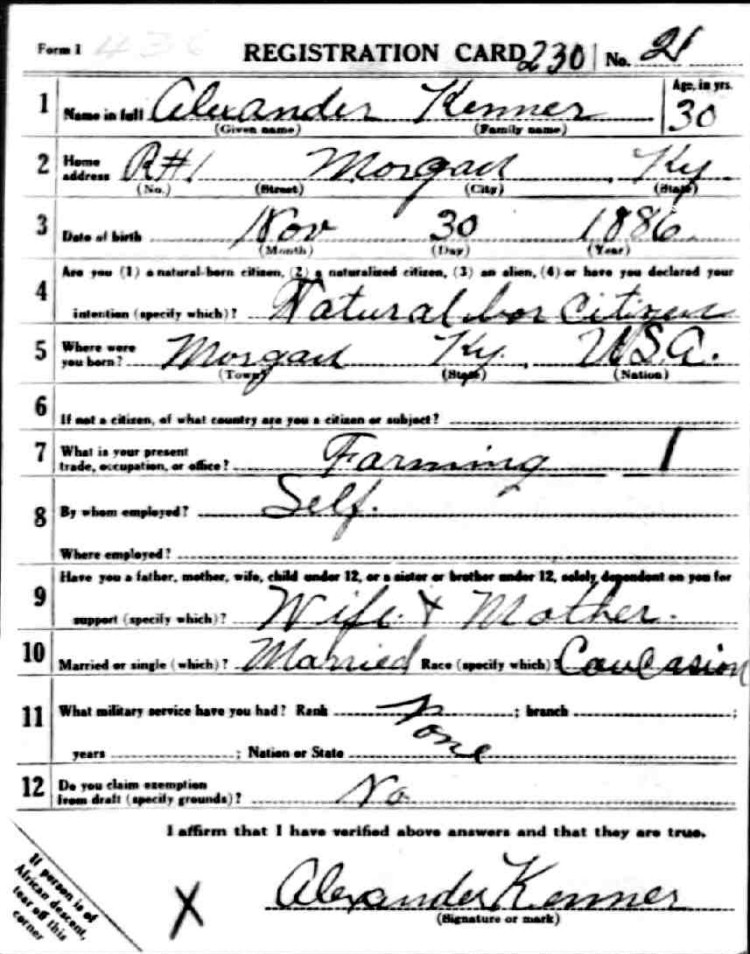 Form 1 436 REGISTRATION CARD 230 No. 21
1 Name in full Alexander Kenner Age, in yrs. 30
(Given name) (Family name)
2 Home address R#1 Morgan Ky
(No.) (Street) (City) (State)
3 Date of birth Nov 30 1886
(Month) (Day) (Year)
4 Are you (1) a natural-born citizen, (2) a naturalized citizen, (3) an alien, (4) or have you declared your
intention (specify which)? Natural bor Citizen
5 Where were you born? Morgan Ky. U.S.A.
(Town) (State) (Nation)
6 If not a citizen, of what country are you a citizen or subject?
7 What is your present trade, occupation, or office? Farming 1
8 By whom employed? Self.
Where employed?
9 Have you a father, mother, wife, child under 12, or a sister or brother under 12, solely dependent on you for
support (specify which)? Wife & Mother.
10 Married or single (which)? Married Race (specify which)? Caucasion
11 What military service have you had? Rank None ; branch ;
years ; Nation or State
12 Do you claim exemption from draft (specify grounds)? No
I affirm that I have verified above answers and that they are true.
X Alexander Kenner
(Signature or mark)
If person is of
African descent,
tear off this
corner